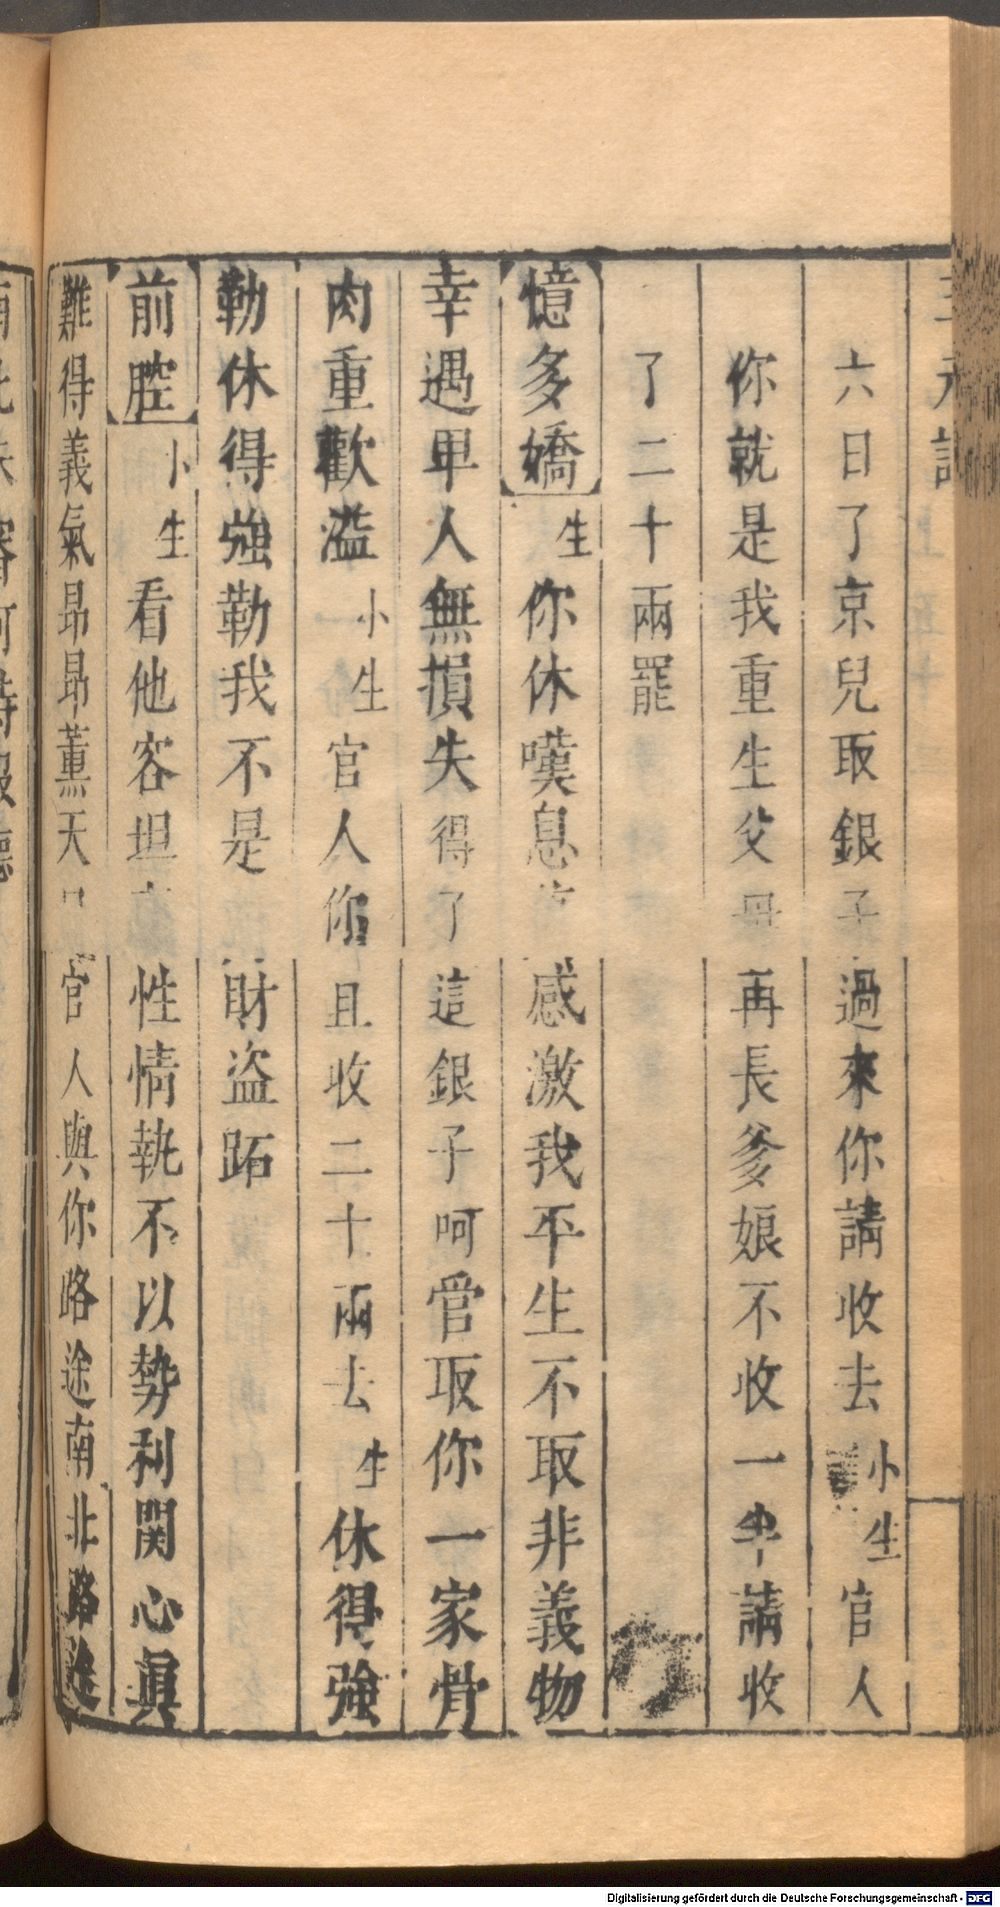 六日了京兒取銀子過來你請收去小生官人
你就是我重生父母再長爹娘不收一半請收
了二十兩罷
憶多嬌生你休嘆息感激我平生不取非義物
幸遇卑人無損失得了這銀子呵管取你一家骨
肉重歡溢小生官人你且收二十兩去生休得強
勒休得強勒我不是財盜跖
前腔小生看他容坦性情執不以勢利関心真
難得義氣昂昂薰天官人與你路途南北路途
Digitalisierung gefördert durch die Deutsche Forschungsgemeinschaft - DFG